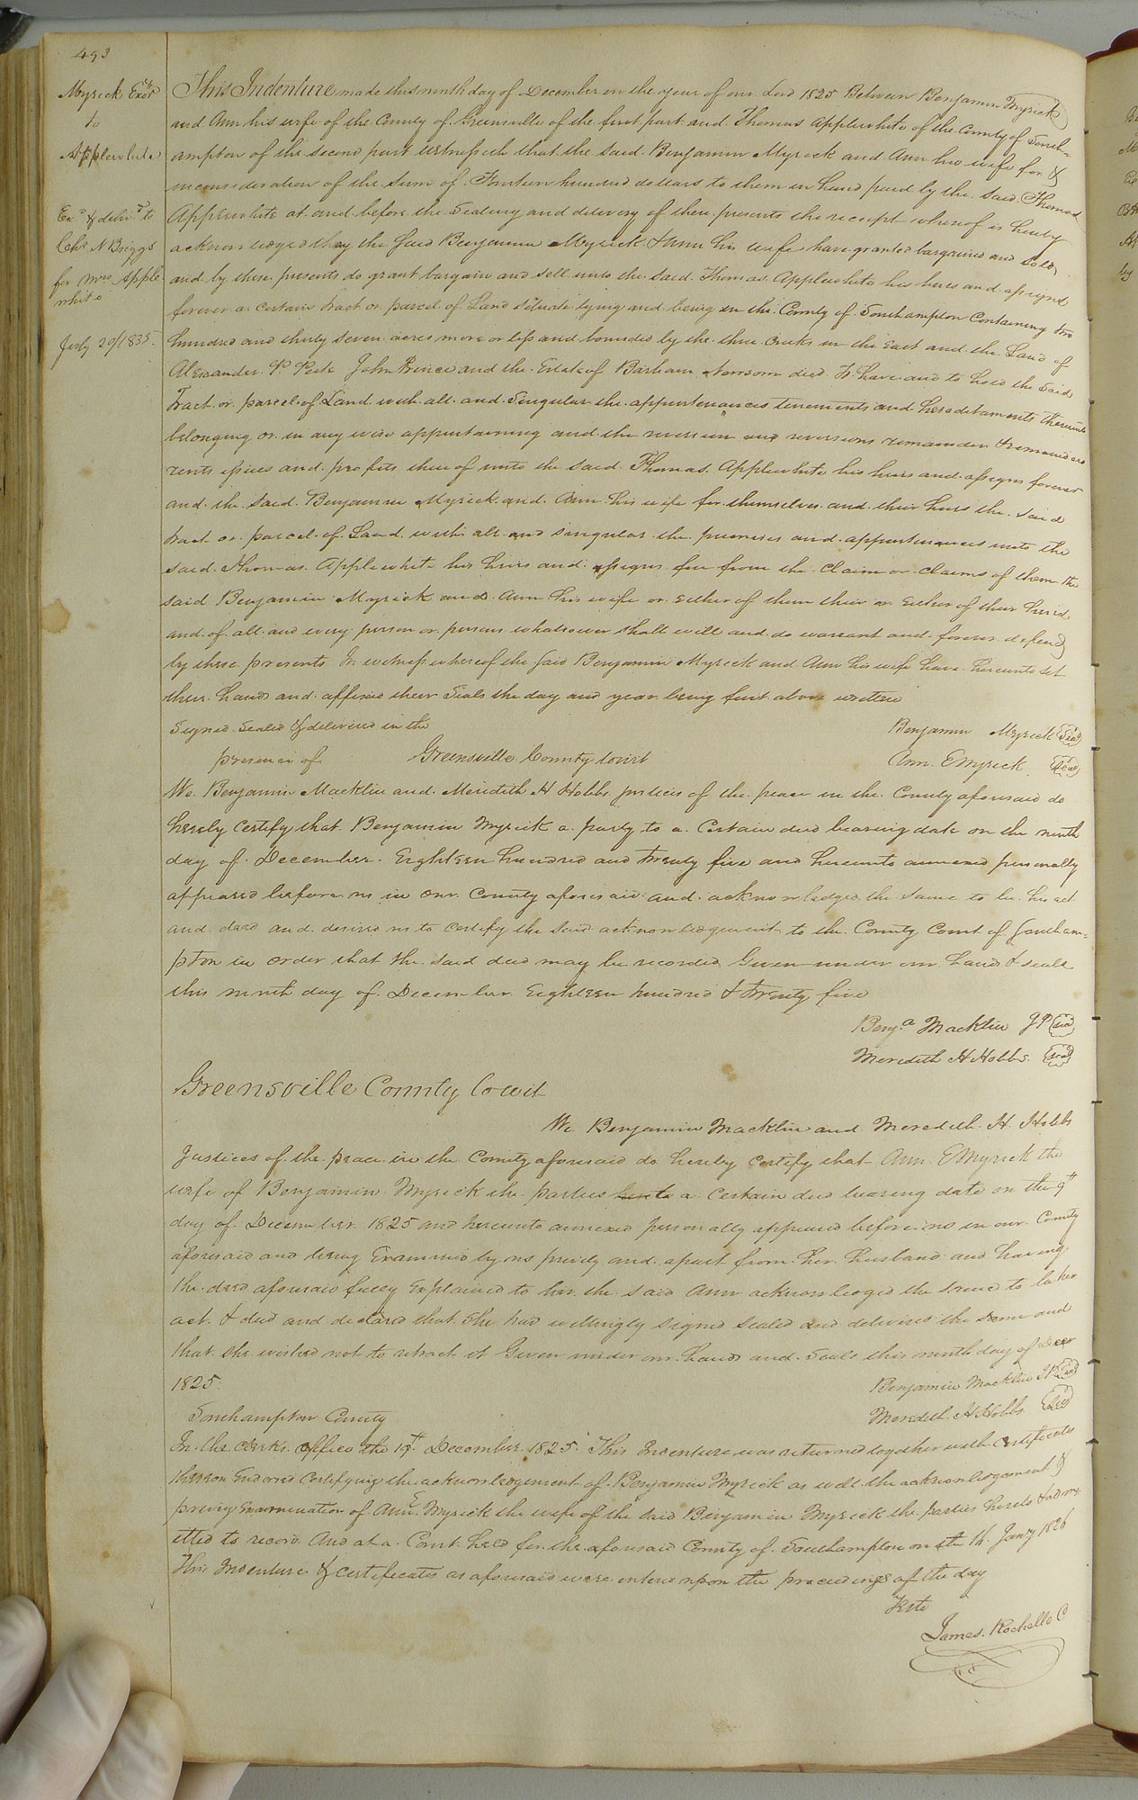 493
Myrick & Exor
to
Applewhite
Exd & delivd to
Chs N Briggs
for Mrs Apple
white
July 20/1835.
This Indenture made this ninth day of December in the year of our Lord 1825 Between Benjamin Myrick
and Ann his wife of the County of Greensville of the first part and Thomas Applewhite of the County of South=
ampton of the second part witnesseth that the said Benjamin Myrick and Ann his wife for &
in consideration of the sum of Fourteen hundred dollars to them in hand paid by the said Thomas
Applewhite at and before the Sealing and delivery of these presents the receipt whereof is hereby
acknowledged they the said Benjamin Myrick & Ann his wife have granted bargained and sold
and by these presents do grant bargain and sell unto the said Thomas Applewhite his heirs and assigns
forever a certain tract or parcel of Land situate lying and being in the County of Southampton Containing two
hundred and thirty seven acres more or less and bounded by the three Creeks in the East and the Land of
Alexander P Peete John Prince and the Estate of Barham Newsom decd To have and to hold the said
Tract or parcel of Land with all and Singular the appurtenances tenements and hereditaments thereunto
belonging or in any wise appertaining and the reversion and reversions remainder & remainders
rents issues and profits thereof unto the said Thomas Applewhite his heirs and assigns forever
and the said Benjamin Myrick and Ann his wife for themselves and their heirs the said
tract or parcel of Land with all and singular the premises and appurtenances unto the
said Thomas Applewhite his heirs and assigns free from the Claim or Claims of them the
said Benjamin Myrick and Ann his wife or Either of them their or Either of their heirs
and of all and every person or persons whatsoever shall will and do warrant and forever defend
by these presents In witness whereof the said Benjamin Myrick and Ann his wife have hereunto set
their hands and affixed their Seals the day and year being first above written
Signed Sealed & delivered in the Benjamin Myrick Seal
presence of Greensville County towit Ann E Myrick Seal
We Benjamin Macklin and Meridith H Hobbs justices of the peace in the County aforesaid do
hereby Certify that Benjamin Myrick a party to a Certain deed bearing date on the ninth
day of December Eighteen hundred and twenty five and hereunto annexed personally
appeared before us in our County aforesaid and acknowledged the same to be his act
and deed and desired us to certify the said acknowledgement to the County Court of Southam=
pton in order that the said deed may be recorded Given under our hands & seals
this ninth day of December Eighteen hundred & twenty five
Benja Macklin JP Seal
Meredith H Hobbs Seal
Greensville County towit
We Benjamin Macklin and Meredith H. Hobbs
Justices of the peace in the County aforesaid do hereby Certify that Ann E Myrick the
wife of Benjamin Myrick the parties to a Certain deed bearing date on the 9th
day of December 1825 and hereunto annexed personally appeared before us in our County
aforesaid and being Examined by us privily and apart from her husband and having
the deed aforesaid fully Explained to her the said Ann acknowledged the same to be her
act & deed and declared that she had willingly signed sealed and delivered the same and
that she wished not to retract it Given under our hands and Seals this ninth day of Decr
1825. Benjamin Macklin JP Seal
Meredith H Hobbs Seal
Southampton County
In the Clerks office the 19th December 1825 This Indenture was returned together with Certificates
thereon Endorsed Certifying the acknowledgement of Benjamin Myrick as well the acknowledgement &
privy Examination of Ann E Myrick the wife of the said Benjamin Myrick the parties hereto & adm
itted to record And at a Court held for the aforesaid County of Southampton on the 16 Jany 1826
This Indenture & Certificates as aforesaid were entered upon the proceedings of the day
Teste
James Rochelle C